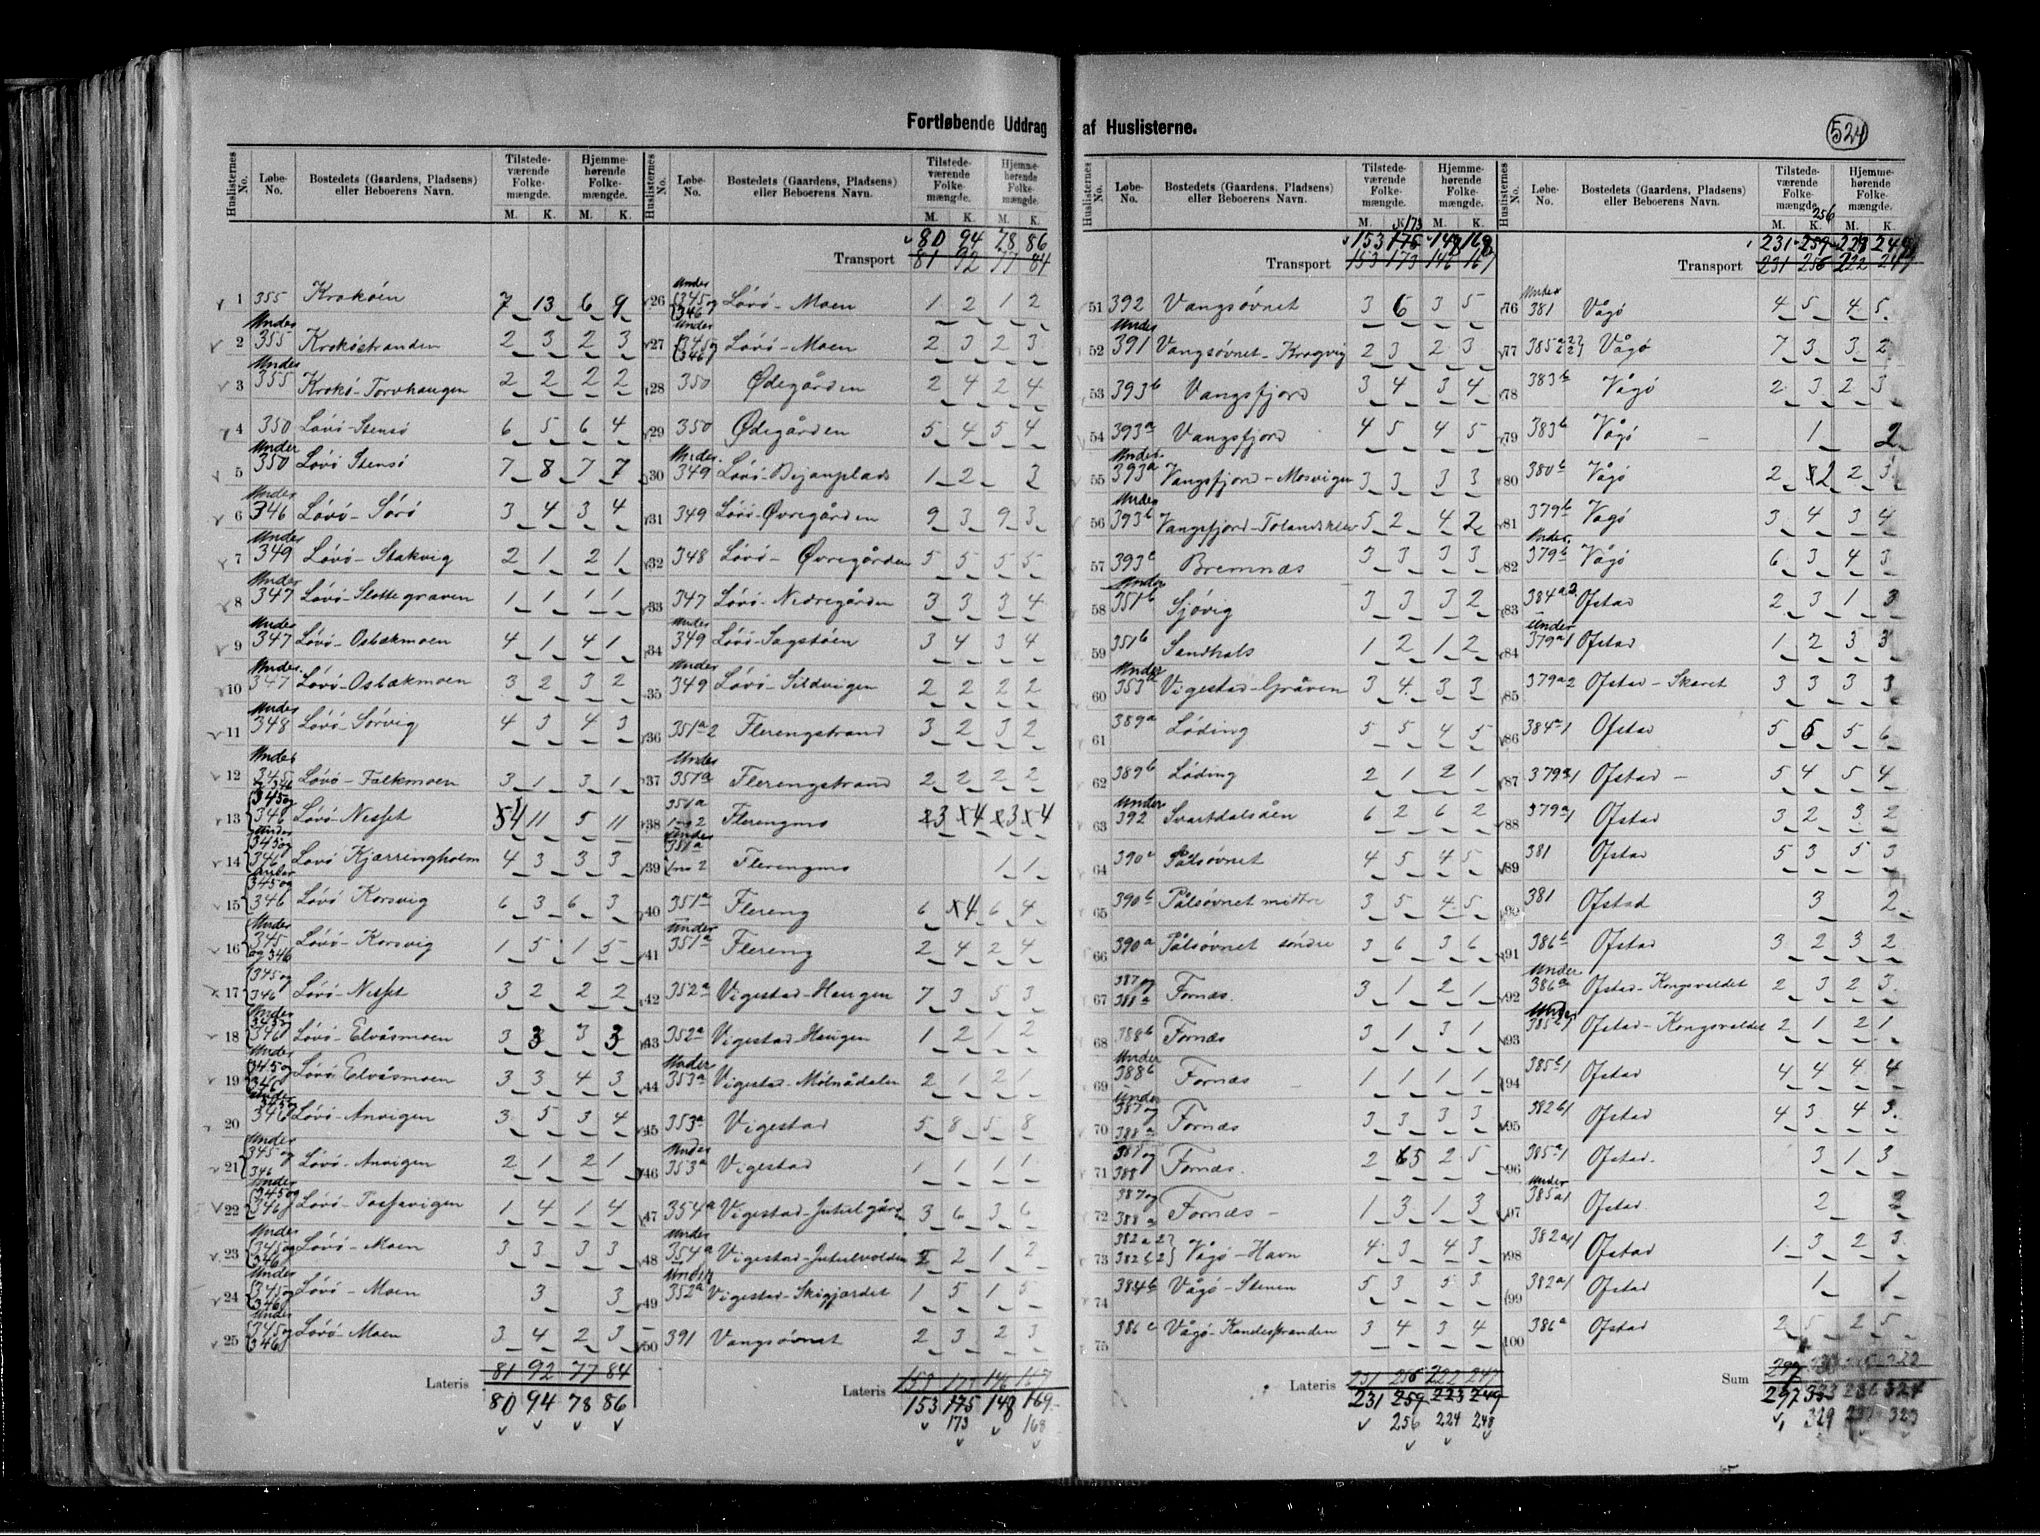 Fortløbende Uddrag af Huslisterne.
524
Huslisternes No. Løbe-No. Bostedets (Gaardens, Pladsens) eller Beboerens Navn. Tilstedeværende Folkemængde. M. K. Hjemmehørende Folkemængde. M. K.
1 355 Krokøen 7 13 6 9
2 Under 355 Krokøstranden 2 3 2 3
3 Under 355 Krokø-Torvhaugen 2 2 2 2
4 350 Løvø-Stensø 6 5 6 4
5 Under 350 Løvø Stensø 7 8 7 7
6 Under 346 Løvø-Sørø 3 4 3 4
7 Under 349 Løvø-Stakvig 2 1 2 1
8 Under 347 Løvø-Slottegraven 1 1 1 1
9 Under 347 Løvø-Osbækmoen 4 1 4 1
10 Under 347 Løvø-Osbækmoen 3 2 3 2
11 Under 348 Løvø-Sørvig 4 3 4 3
12 Under 345 og 346 Løvø-Falkmoen 3 1 3 1
13 345 og 346 Løvø-Nesset 4 11 5 11
14 Under 345 og 346 Løvø Kjærringholm 4 3 3 3
15 Under 345 og 346 Løvø Korsvig 6 3 6 3
16 Under 345 og 346 Løvø-Korsvig 1 5 1 5
17 345 og 346 Løvø-Nesset 3 2 2 2
18 Under 345 og 346 Løvø-Elvåsmoen 3 3 3 3
19 Under 345 og 346 Løvø Elvåsmoen 3 3 4 3
20 Under 345 og 346 Løvø-Anvigen 3 5 3 4
21 Under 345 og 346 Løvø-Anvigen 2 1 2 1
22 Under 345 og 346 Løvø-Tosfavigen 1 4 1 4
23 Under 345 og 346 Løvø-Moen 3 3 3 3
24 Under 345 og 346 Løvø-Moen 3 3
25 Under 345 og 346 Løvø-Moen 3 4 2 3
81 92 77 84
Lateris
80 94 78 86
Huslisternes No. Løbe-No. Bostedets (Gaardens, Pladsens) eller Beboerens Navn. Tilstedeværende Folkemængde. M. K. Hjemmehørende Folkemængde. M. K.
80 94 78 86
Transport 81 92 77 84
26 Under 345 og 346 Løvø-Moen 1 2 1 2
27 Under 345 og 346 Løvø-Moen 2 3 2 3
28 350 Ødegården 2 4 2 4
29 350 Ødegården 5 4 5 4
30 Under 349 Løvø-Bijanplads 1 2 3
31 349 Løvø-Øvregården 9 3 9 3
32 348 Løvø-Øvregården 5 5 5 5
33 347 Løvø-Nedregården 3 3 3 4
34 Under 349 Løvø-Sagstøen 3 4 3 4
35 Under 349 Løvø-Sildvigen 2 2 2 2
36 351a2 Flerengstrand 3 2 3 2
37 Under 351a Flerengstrand 2 2 2 2
38 351a 1 og 2 Flerengmo 3 4 3 4
39 Under 351a 1 og 2 Flerengmo 1 1
40 351a Flereng 6 4 6 4
41 Under 351a Flereng 2 4 2 4
42 352a Vigestad-Haugen 7 3 5 3
43 352a Vigestad-Haugen 1 2 1 2
44 Under 353a Vigestad-Mølnådalen 2 1 2 1
45 353a Vigestad 5 8 5 8
46 Under 353a Vigestad 1 1 1 1
47 354a Vigestad-Jutulgården 3 6 3 6
48 Under 354a Vigestad-Jutulvolden 2 2 1 2
49 Under 352a Vigestad-Skigjærdet 1 5 1 5
50 391 Vangsøvnet 2 3 2 3
153 173 146 167
Lateris
153 175 148 169
173 168
Huslisternes No. Løbe-No. Bostedets (Gaardens, Pladsens) eller Beboerens Navn. Tilstedeværende Folkemængde. M. K. Hjemmehørende Folkemængde. M. K.
173
153 175 148 168
Transport 153 173 146 167
51 392 Vangsøvnet 3 6 3 5
52 Under 391 Vangsøvnet-Krogvig 2 3 2 3
53 393b Vangsfjord 3 4 3 4
54 393a Vangsfjord 4 5 4 5
55 Under 393a Vangsfjord-Mosvigen 3 3 3 3
56 Under 393b Vangsfjord-Tolandsklev 5 2 4 2
57 393b Bremnæs 3 3 3 3
58 Under 351b Sjøvig 3 3 3 2
59 351b Sandhals 1 2 1 2
60 Under 353b Vigestad-Gråven 3 4 3 3
61 389a Løding 5 5 4 5
62 389b Løding 2 1 2 1
63 Under 392 Svartdalsøen 6 2 6 2
64 390c Pålsøvnet 4 5 4 5
65 390b Pålsøvnet midtre 3 5 4 5
66 390a Pålsøvnet søndre 3 6 3 6
67 387 og 388a Fornæs. 3 1 2 1
68 388b Fornæs 3 1 3 1
69 Under 388b Fornæs 1 1 1 1
70 Under 387 og 388a Fornæs 3 3 3 3
71 387 og 388 Fornæs. 2 5 2 5
72 387 og 388a Fornæs- 1 3 1 3
73 382a2 382b2 Vågø-Havn 4 3 4 3
74 384b Vågø-Stenen 5 3 5 3
75 386c Vågø-Kandestranden 3 4 3 4
231 256 222 247
Lateris
231 259 223 249
256 224 248
Huslisternes No. Løbe-No. Bostedets (Gaardens, Pladsens) eller Beboerens Navn. Tilstedeværende Folkemængde. M. K. Hjemmehørende Folkemængde. M. K.
256
231 259 223 249
Transport 231 256 222 247
76 Under 381 Vågø 4 5 4 5
77 385a2 Vågø 7 3 3 2
78 383b Vågø 2 3 2 3
79 383b Vågø 1 2
80 380b Vågø 2 2 2 3
81 379b Vågø 3 4 3 4
82 Under 379b Vågø 6 3 4 3
83 384a2 Ofstad 2 3 1 3
84 Under 379a1 Ofstad 1 2 3 3
85 379a2 Ofstad-Skaret 3 3 3 3
86 384a1 Ofstad 5 6 5 6
87 379a1 Ofstad- 5 4 5 4
88 379a1 Ofstad 3 2 3 2
89 381 Ofstad 5 3 5 3
90 381 Ofstad 3 2
91 386b Ofstad 3 2 3 2
92 Under 386a Ofstad-Kongsvoldet 2 3 2 3
93 Under 385b1 Ofstad-Kongsvoldet 2 1 2 1
94 385b1 Ofstad 4 4 4 4
95 382b1 Ofstad 4 3 4 3
96 385a1 Ofstad. 3 1 3
97 Under 385a1 Ofstad 2 2
98 382a1 Ofstad 1 3 2 3
99 382a1 Ofstad 1 1
100 386a Ofstad 2 5 2 5
297
Sum
297 333 236 324
329 237 323